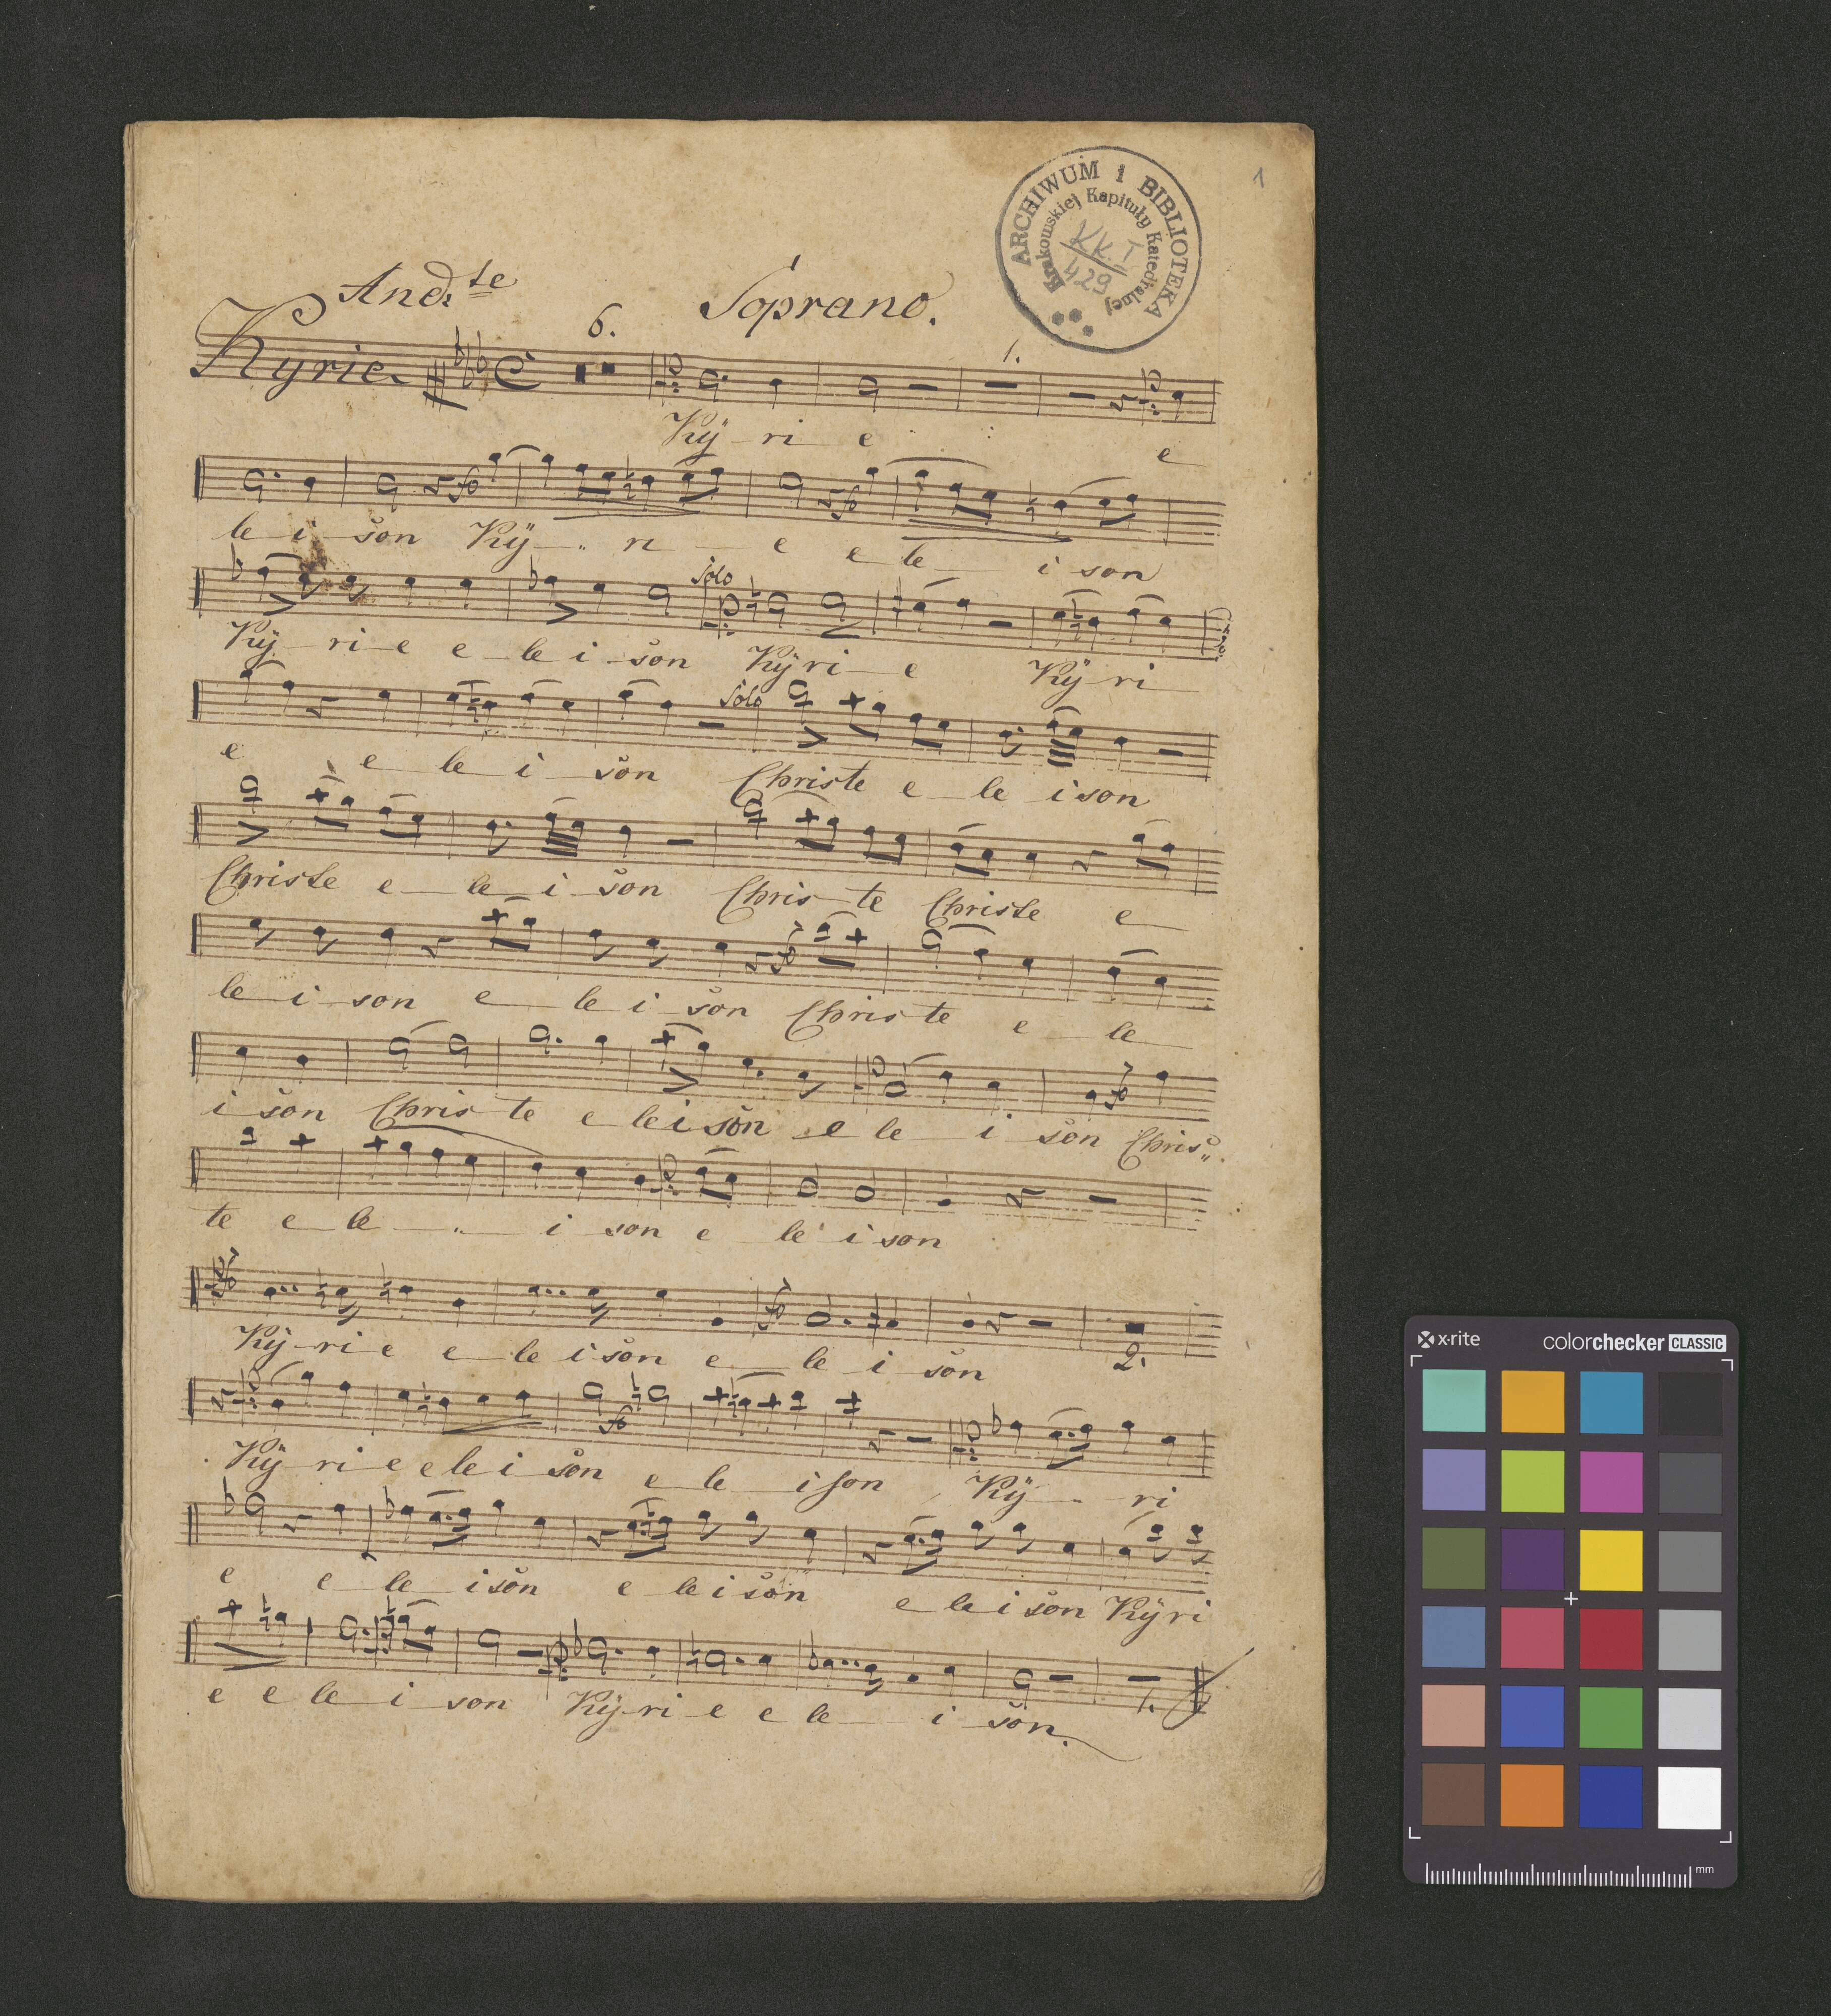 ARCHIWUM i BIBLIOTEKA
Krakowskiej Kapituły Katedralnej
KK. I
429
1
And.te
Soprano.
6.
1.
Kyrie
Kÿ ri e e
le i son Kÿ ri e e le i son
solo
Kÿ ri e e le i son Kÿ ri e Kÿ ri
solo
e e le i son Christe e le i son
Christe e le i son Chris te Christe e
le i son e le i son Chris te e le
i son Chris te e le i son e le i son Chris
te e le i son e le i son
Kÿ ri e e le i son e le i son
2.
Kÿ ri e e le i son e le i son Kÿ ri
e e le i son e le i son e le i son Kÿ ri
e e le i son Kÿ ri e e le i son.
1.
x-rite
colorchecker CLASSIC
mm